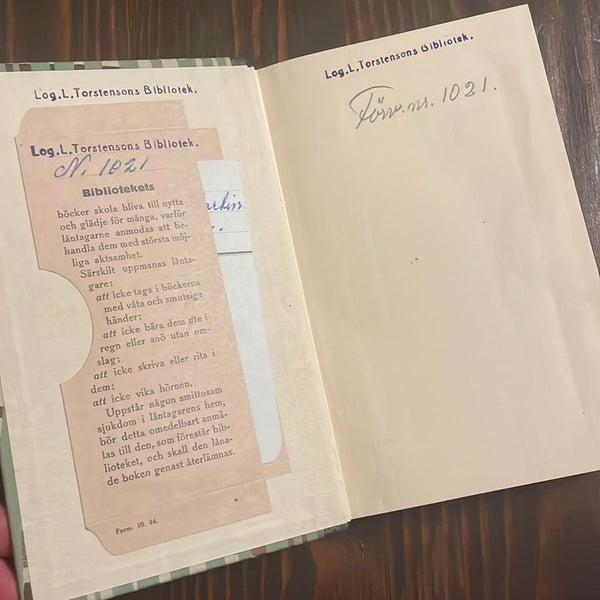 Log.L.Torstensons Bibliotek.
Log.L.Torstensons Bibliotek.
N. 1021
Bibliotekets
böcker skola bliva till nytta
och glädje för många, varför
låntagarne anmodas att be-
handla dem med största möj-
liga aktsamhet.
Särskilt uppmanas lånta-
gare;
att icke taga i böckerna
med våta och smutsiga
händer;
att icke bära dem ute i
regn eller snö utan om-
slag;
att icke skriva eller rita i
dem;
att icke vika hörnen.
Uppstår någon smittosam
sjukdom i låntagarens hem,
bör detta omedelbart anmä-
las till den, som förestår bib-
lioteket, och skall den låna-
de boken genast återlämnas.
Form. 10. 44.
Log.L.Torstensons Bibliotek.
Förv. nr. 1021.